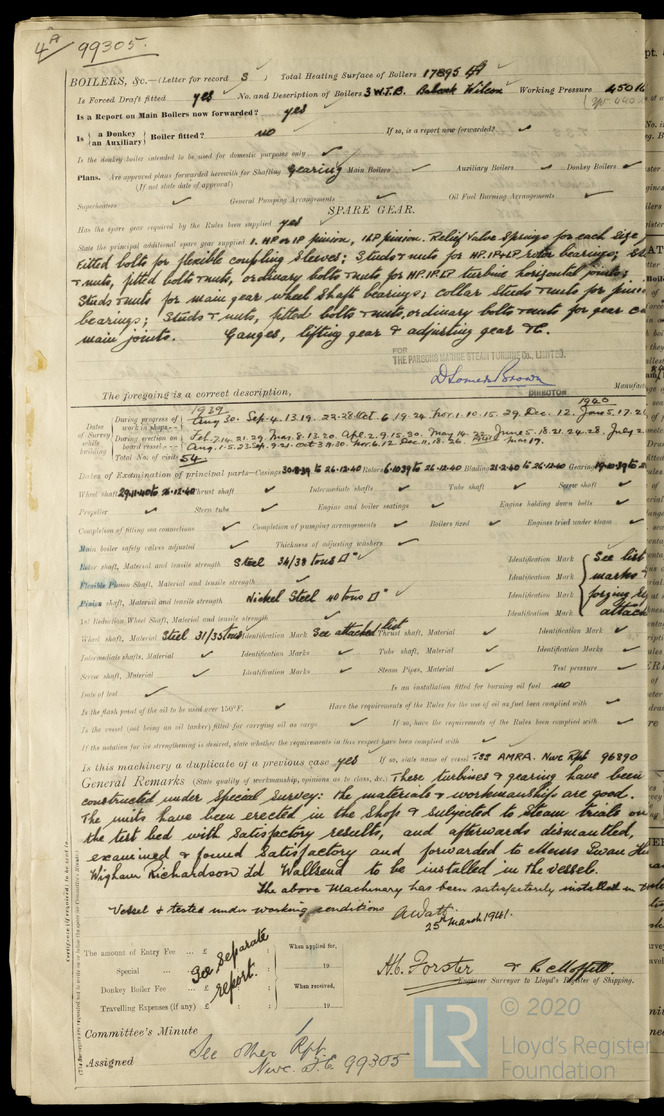 4A 99305.
BOILERS, &c.—(Letter for record S ) Total Heating Surface of Boilers 17895
Is Forced Draft fitted yes No. and Description of Boilers 3 W.T.B. Babcock Wilcox Working Pressure 450
Is a Report on Main Boilers now forwarded? yes
Is { a Donkey / an Auxiliary } Boiler fitted? no If so, is a report now forwarded?
Is the donkey boiler intended to be used for domestic purposes only
Plans. Are approved plans forwarded herewith for Shafting Gearing Main Boilers Auxiliary Boilers Donkey Boilers
(If not state date of approval)
Superheaters General Pumping Arrangements Oil Fuel Burning Arrangements
SPARE GEAR.
Has the spare gear required by the Rules been supplied yes
State the principal additional spare gear supplied 1. HP or IP pinion, 1 LP pinion. Relief Valve Springs for each size,
Fitted bolts for flexible coupling sleeves; Studs & nuts for HP. IP & LP rotor bearings;
& nuts, fitted bolts & nuts, ordinary bolts & nuts for HP. IP. LP turbine horizontal joints;
Studs & nuts for main gear wheel shaft bearings; collar studs & nuts for pinion
bearings; Studs & nuts, fitted bolts & nuts, ordinary bolts & nuts for gear
main joints. Gauges, lifting gear & adjusting gear &c.
FOR
THE PARSONS MARINE STEAM TURBINE CO., LIMITED.
DIRECTOR
The foregoing is a correct description, Manufac
1939 1940
Dates of Survey while building
During progress of work in shops Aug 30. Sep. 4. 13. 19. 22. 28. Oct. 6. 19. 24. Nov. 1. 10. 15. 29. Dec. 12. Jan 5. 17. 2
During erection on board vessel Feb. 7. 14. 21. 29. Mar. 8. 13. 20. Apl. 2. 9. 15. 30. May 14. 22. June 5. 18. 21. 24. 28. July 2.
Total No. of visits 54
Dates of Examination of principal parts—Casings 30-8-39 to 26-12-40 Rotors 6-10-39 to 26-12-40 Blading 21-2-40 to 26-12-40 Gearing 19-10-39 to
Wheel shaft 29-11-40 to 26-12-40 Thrust shaft Intermediate shafts Tube shaft Screw shaft
Propeller Stern tube Engine and boiler seatings Engine holding down bolts
Completion of fitting sea connections Completion of pumping arrangements Boilers fixed Engines tried under steam
Main boiler safety valves adjusted Thickness of adjusting washers
Rotor shaft, Material and tensile strength Steel 34/38 tons □" Identification Mark See list
Flexible Pinion Shaft, Material and tensile strength Identification Mark marks
Pinion shaft, Material and tensile strength Nickel Steel 40 tons □" Identification Mark forging
1st Reduction Wheel Shaft, Material and tensile strength Identification Mark attach
Wheel shaft, Material Steel 31/35 tons Identification Mark See attached list Thrust shaft, Material Identification Mark
Intermediate shafts, Material Identification Marks Tube shaft, Material Identification Marks
Screw shaft, Material Identification Marks Steam Pipes, Material Test pressure
Date of test Is an installation fitted for burning oil fuel no
Is the flash point of the oil to be used over 150°F. Have the requirements of the Rules for the use of oil as fuel been complied with
Is the vessel (not being an oil tanker) fitted for carrying oil as cargo If so, have the requirements of the Rules been complied with
If the notation for ice strengthening is desired, state whether the requirements in this respect have been complied with
Is this machinery a duplicate of a previous case yes If so, state name of vessel TSS AMRA. Nwc Rpt 96890
General Remarks (State quality of workmanship, opinions as to class, &c.) These turbines & gearing have been
constructed under Special Survey: the materials & workmanship are good.
The units have been erected in the Shop & subjected to steam trials on
the test bed with satisfactory results, and afterwards dismantled,
examined & found satisfactory and forwarded to Messrs Swan
Wigham Richardson Ld Wallsend to be installed in the vessel.
The above Machinery has been satisfactorily installed in
Vessel & tested under working conditions
25th March 1941.
The amount of Entry Fee ... £ : :
Special ... £
Donkey Boiler Fee ... £
Travelling Expenses (if any) £ : :
See Separate report.
When applied for,
19
When received,
19
H.C. Forster & R. C. Moffitt.
Engineer Surveyor to Lloyd's Register of Shipping.
Committee's Minute
Assigned See other Rpt.
Nwc. 99305
LR © 2020
Lloyd's Register
Foundation